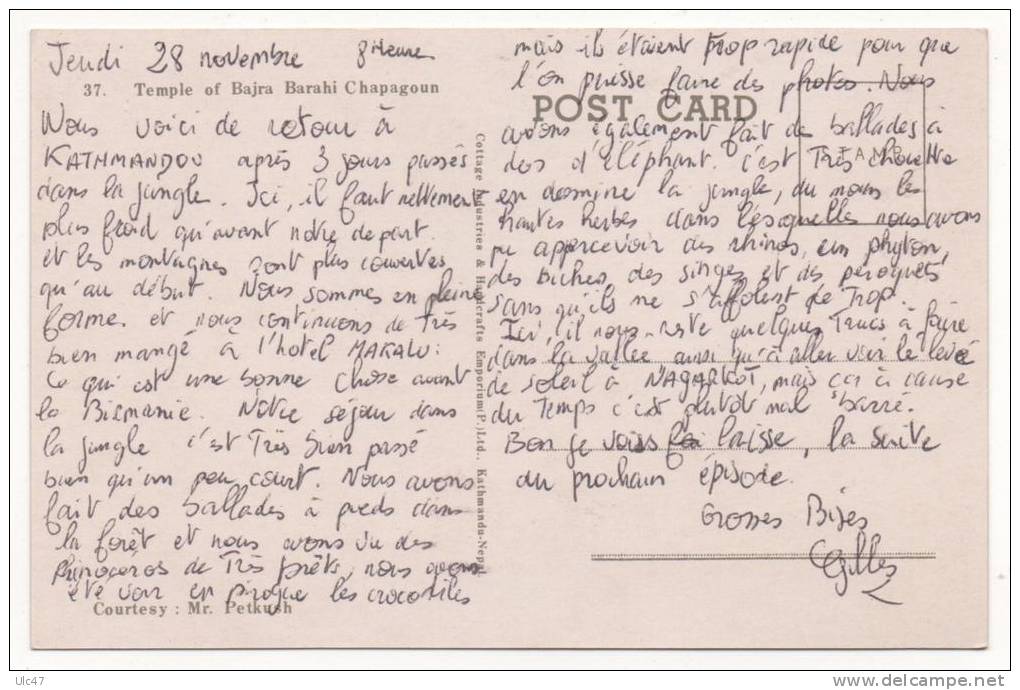 Jeudi 28 novembre 8 Heure
37. Temple of Bajra Barahi Chapagoun
Nous voici de retour à
KATHMANDOU après 3 jours passés
dans la jungle. Ici, il faut nettement
plus froid qu'avant notre depart.
et les montagnes sont plus couvertes
qu'au début. Nous sommes en pleine
forme et nous continuons de Très
bien mangé à l'hotel MAKALU.
Ce qui est une bonne chose avant
la Birmanie. Nôtre séjour dans
la jungle c'est Très bien passé
bien qu'un peu court. Nous avons
fait des ballades à pieds dans
la forêt et nous avons vu des
rhinoceros de Très prêts, nous avons
été voir en pirogue les crocodiles
Courtesy : Mr. Petkush
Cottage Industries & Handcrafts Emporium(P.)Ltd., Kathmandu-Nepal
POST CARD
STAMP
mais ils étaient Trop rapide pour que
l'on puisse faire des photos. Nous
avons également fait de ballades à
dos d'éléphant. c'est Très chouette
on domine la jungle, du moins les
hautes herbes dans lésquelles nous avons
pu appercevoir des rhinos, un phyton,
des biches, des singes et des peroquets,
sans qu'ils ne s'affolent de Trop.
Ici il nous reste quelques Trucs à faire
dans la vallée ainsi qu'à aller voir le levé
de soleil à NAGARKOT, mais ça à cause
du Temps c'est plutôt mal barré.
Bon je vous laisse, la suite
au prochain épisode.
Grosses Bises
Gilles
Ulc47
www.delcampe.net